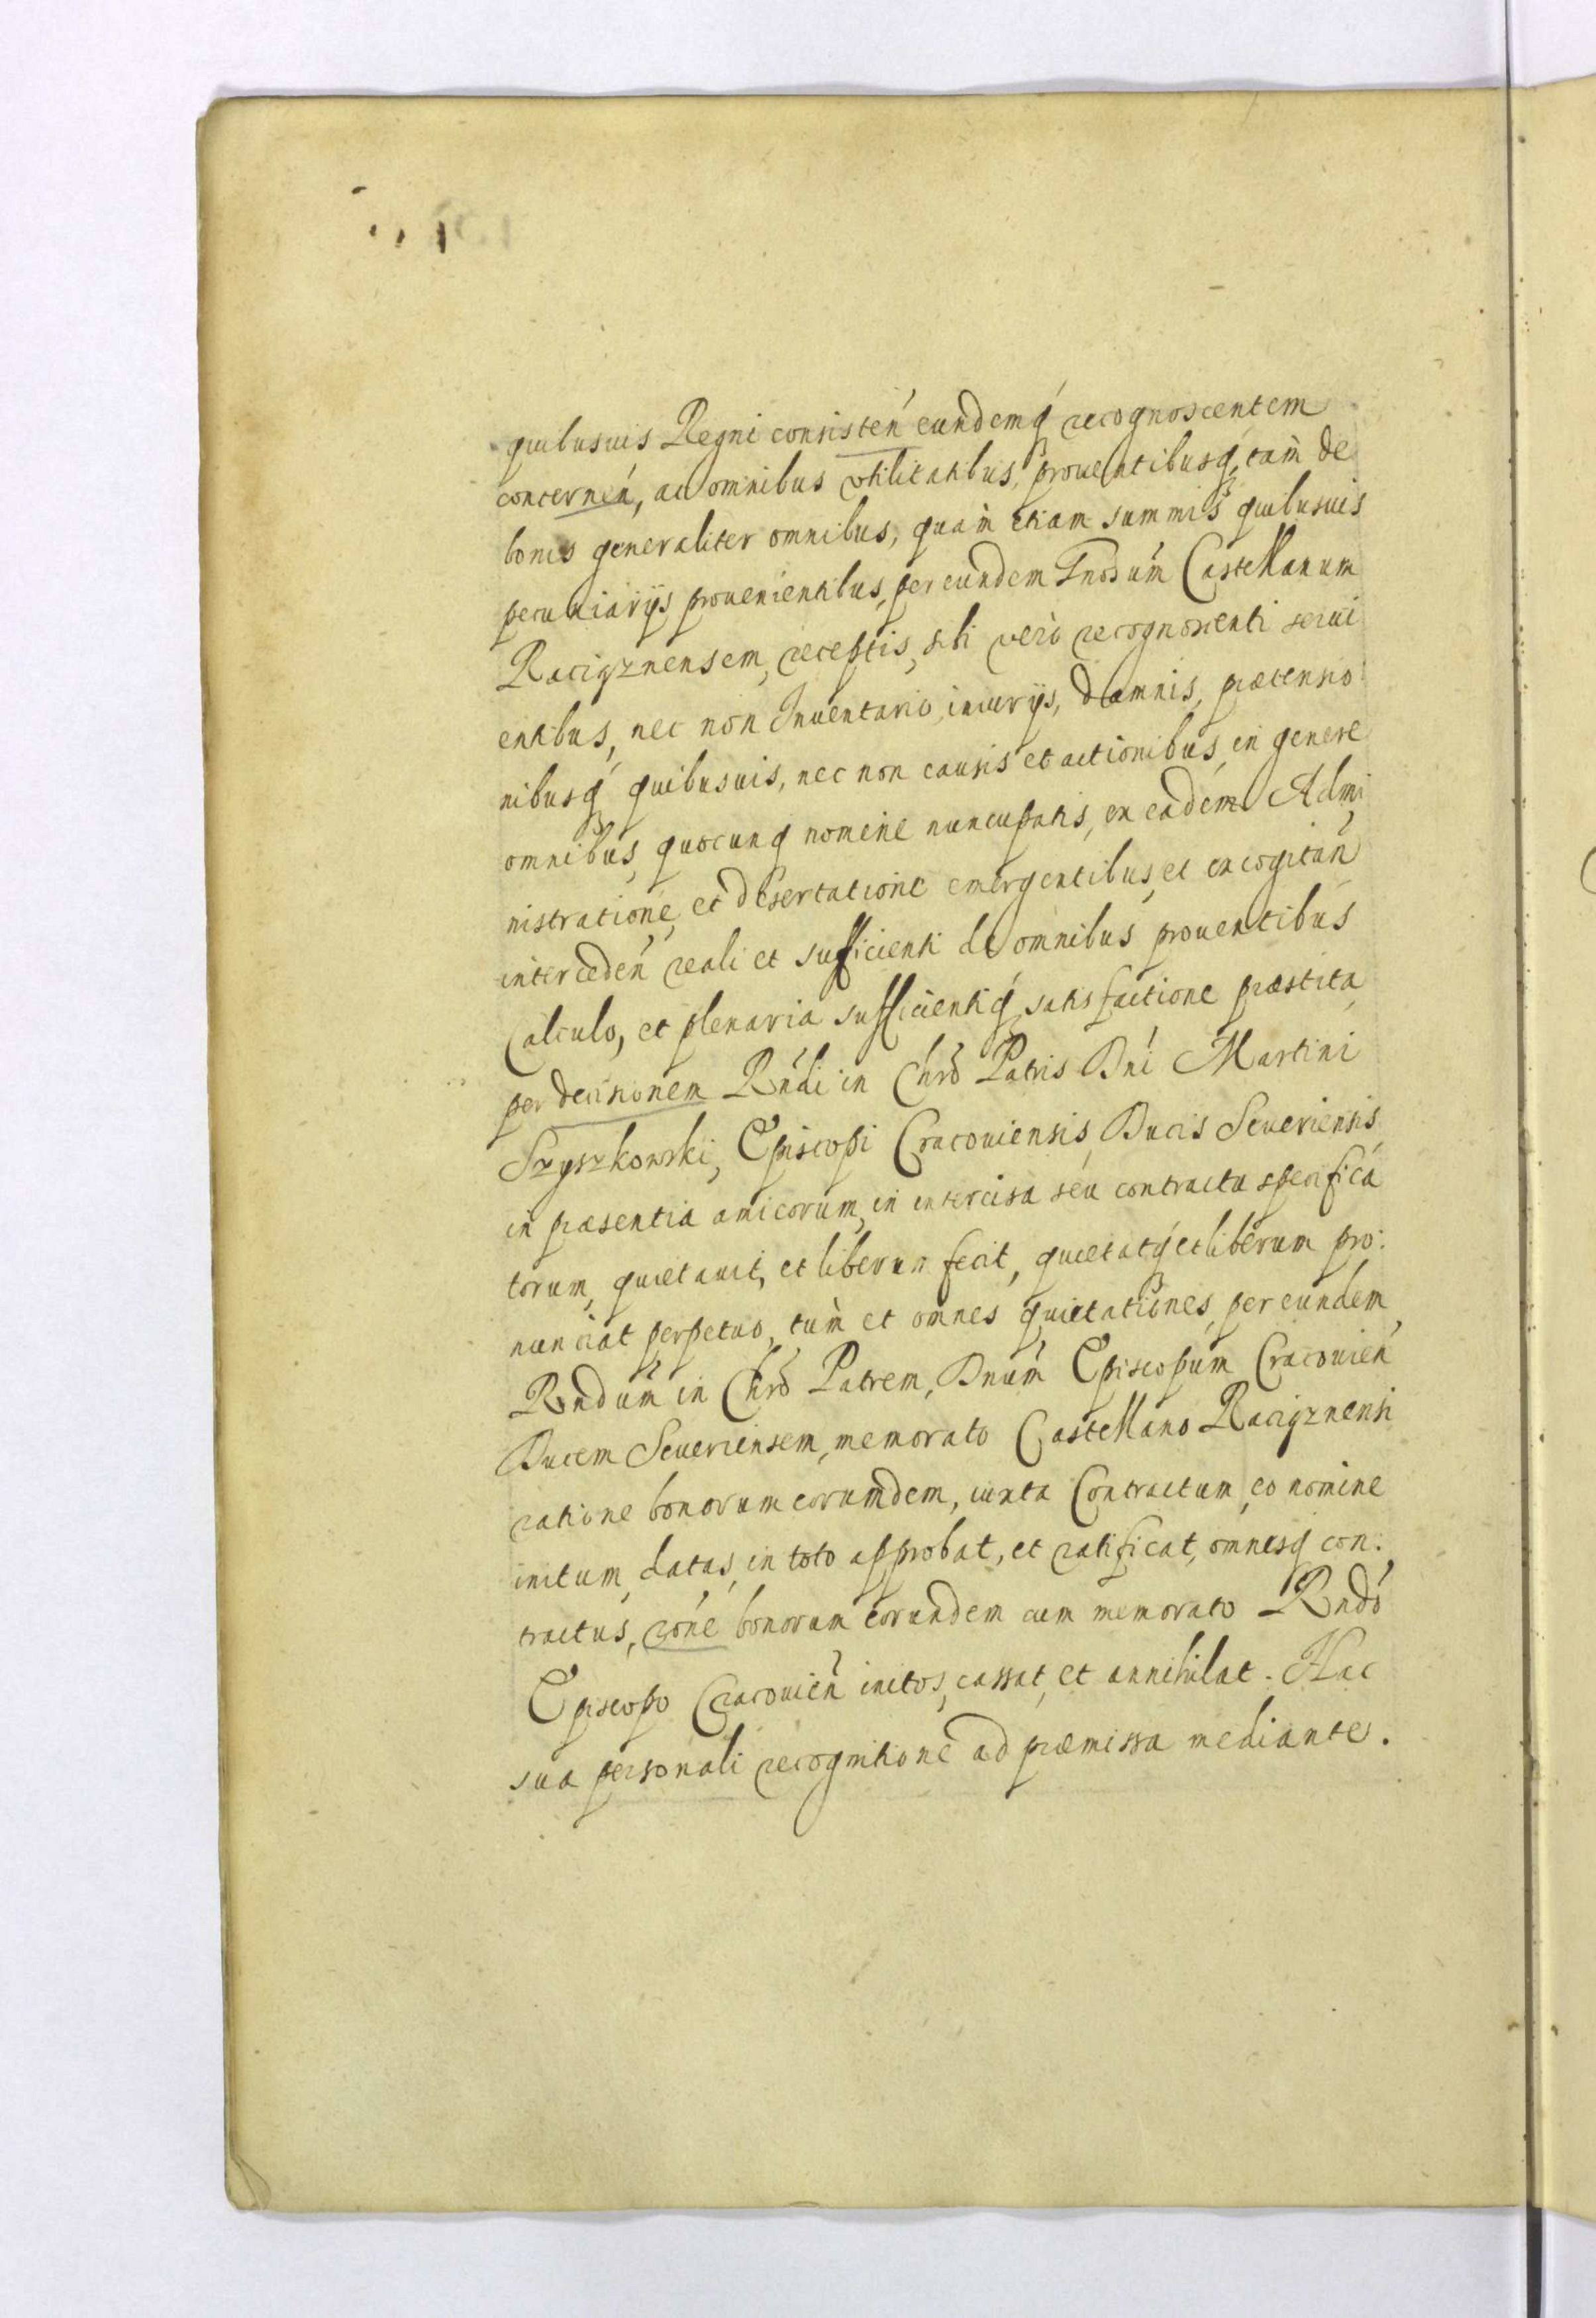 quibusuis Regni consisteń eundemq́ recognoscentem
concerneń, ac omnibus vtilitatibus, prouentibusq, tam̀ de
bonis generaliter omnibus, quam̀ etiam summis quibusuis
pecuniarÿs prouenientibus, per eundem Gnosum̃ Castellanum
Raciąznensem, receptis, sibi verò recognoscenti serui
entibus, nec non Inuentario, iniurÿs, damnis, prætensio
nibusq́ quibusuis, nec non causis et actionibus, in genere
omnibus, quocunq nomine nuncupatis, ex eadem Admi
nistratione, et desertatione emergentibus, et excogitań
intercedeń reali et sufficienti de omnibus prouentibus
Calculo, et plenaria sufficientiq́ satisfactione præstita
per decisionem Rńdi in Chrõ Patris Dńi Martini
Szyszkowski, Episcopi Cracouiensis, Ducis Seueriensis
in præsentia amicorum, in intercisa seu contractu specifica
torum, quietauit, et liberum fecit, quietatq́ et liberum pro:
nunciat perpetuo, tum̀ et omnes quietationes, per eundem
Rndum̃ in Chrõ Patrem, Dnum̃ Episcopum Cracouieñ
Ducem Seueriensem, memorato Castellano Raciąznensi
ratione bonorum eorumdem, iuxta Contractum, eo nomine
initum, datas, in toto approbat, et ratificat, omnesq con:
tractus, rońe bonorum eorundem cum memorato Rndó
Episcopo Cracouieñ initos, cassat, et annihilat. Hac
sua personali recognitione ad præmissa mediante.